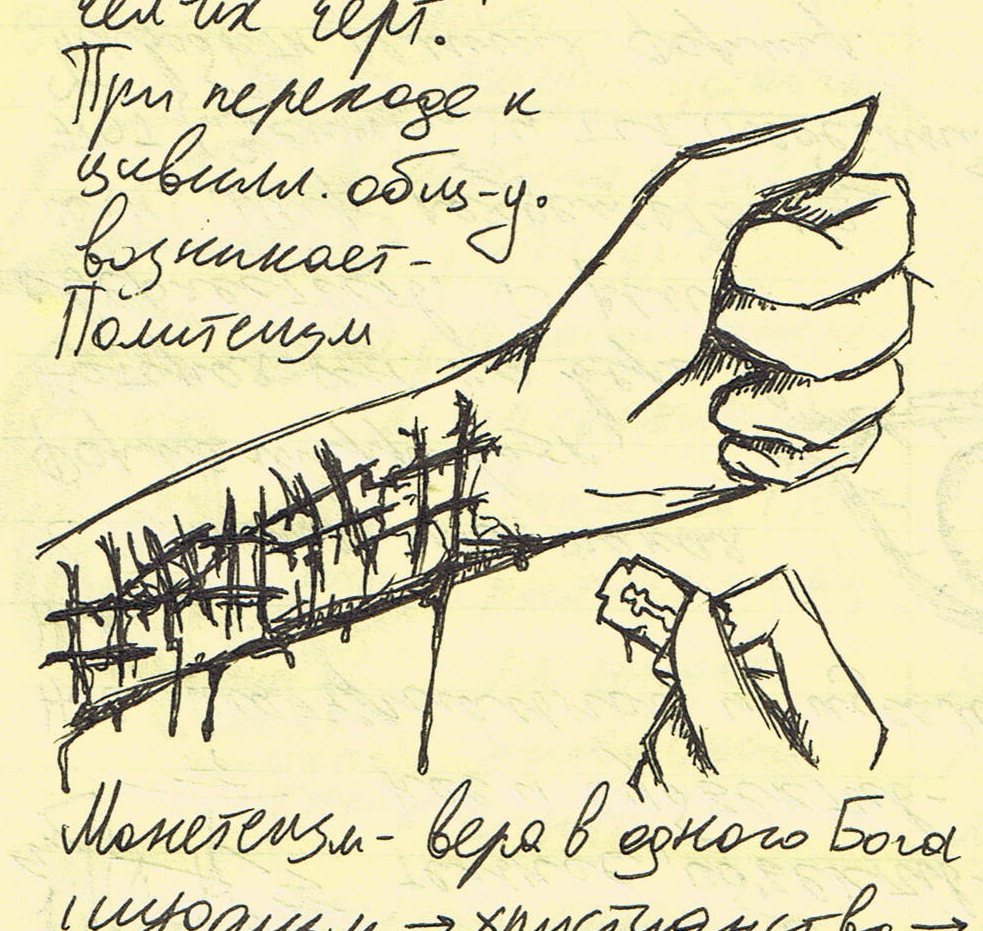 чел-их черт.
При переходе к
цивилл. общ-у.
возникает-
Политеизм
Монетеизм- вера в одного Бога
иудаизм → христианство →